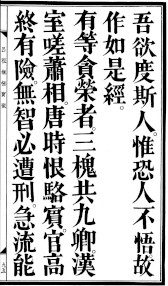 吾欲度斯人。惟恐人不悟故
作如是經。
有等貪榮者。三槐共九卿。漢
室嗟蕭相。唐時恨駱賓。官高
終有險。無智必遭刑。急流能